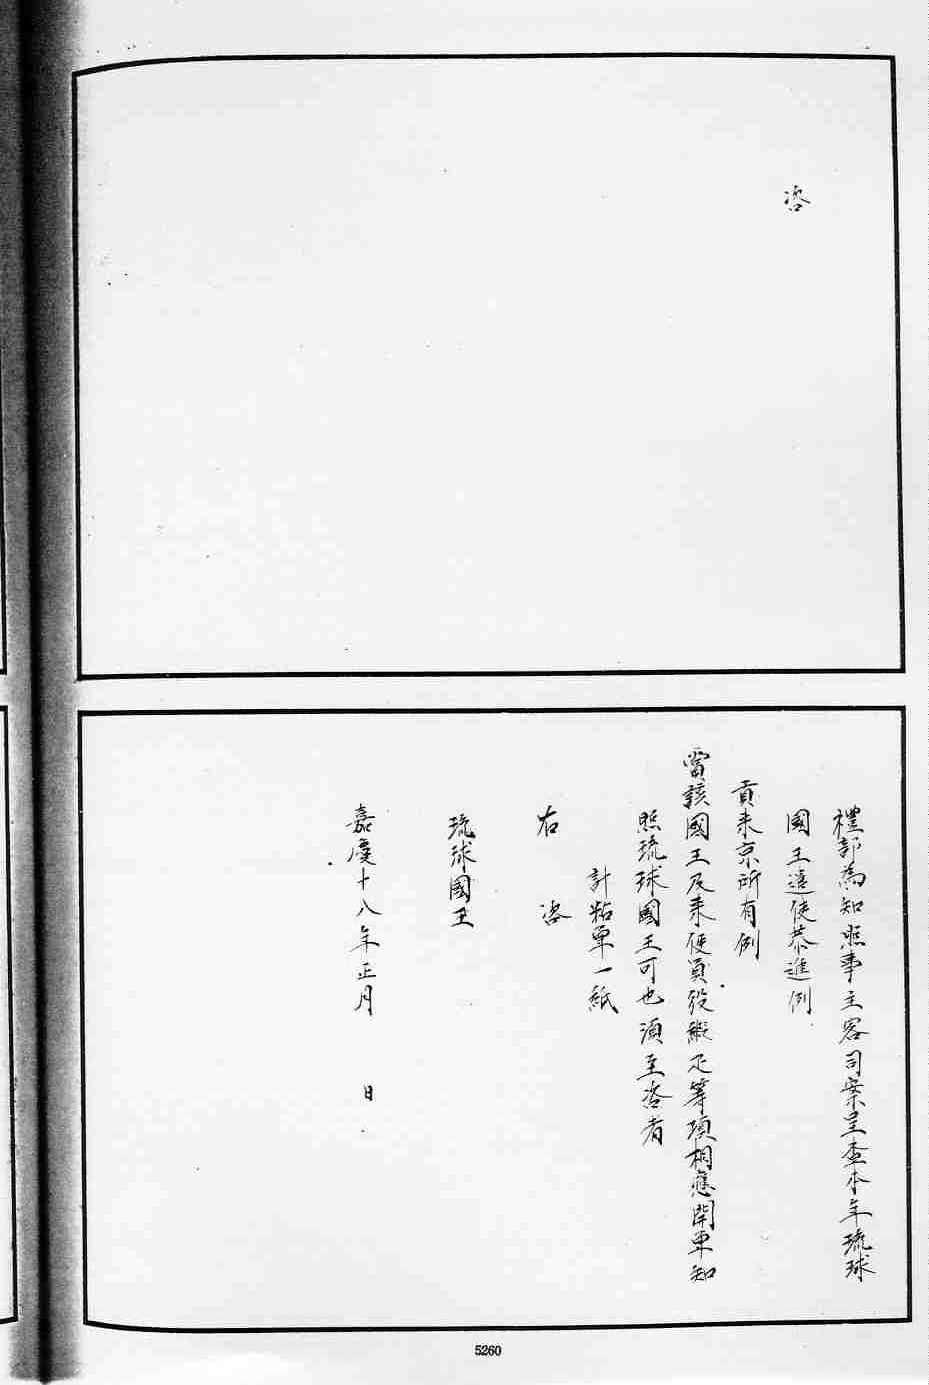 咨
禮部為知照事主客司案呈查本年琉球
國王遣使恭進例
貢来京所有例
賞該國王及来使員役緞疋等項相應開單知
照琉球國王可也須至咨者
計粘單一紙
右咨
琉球國王
嘉慶十八年正月 日
5260